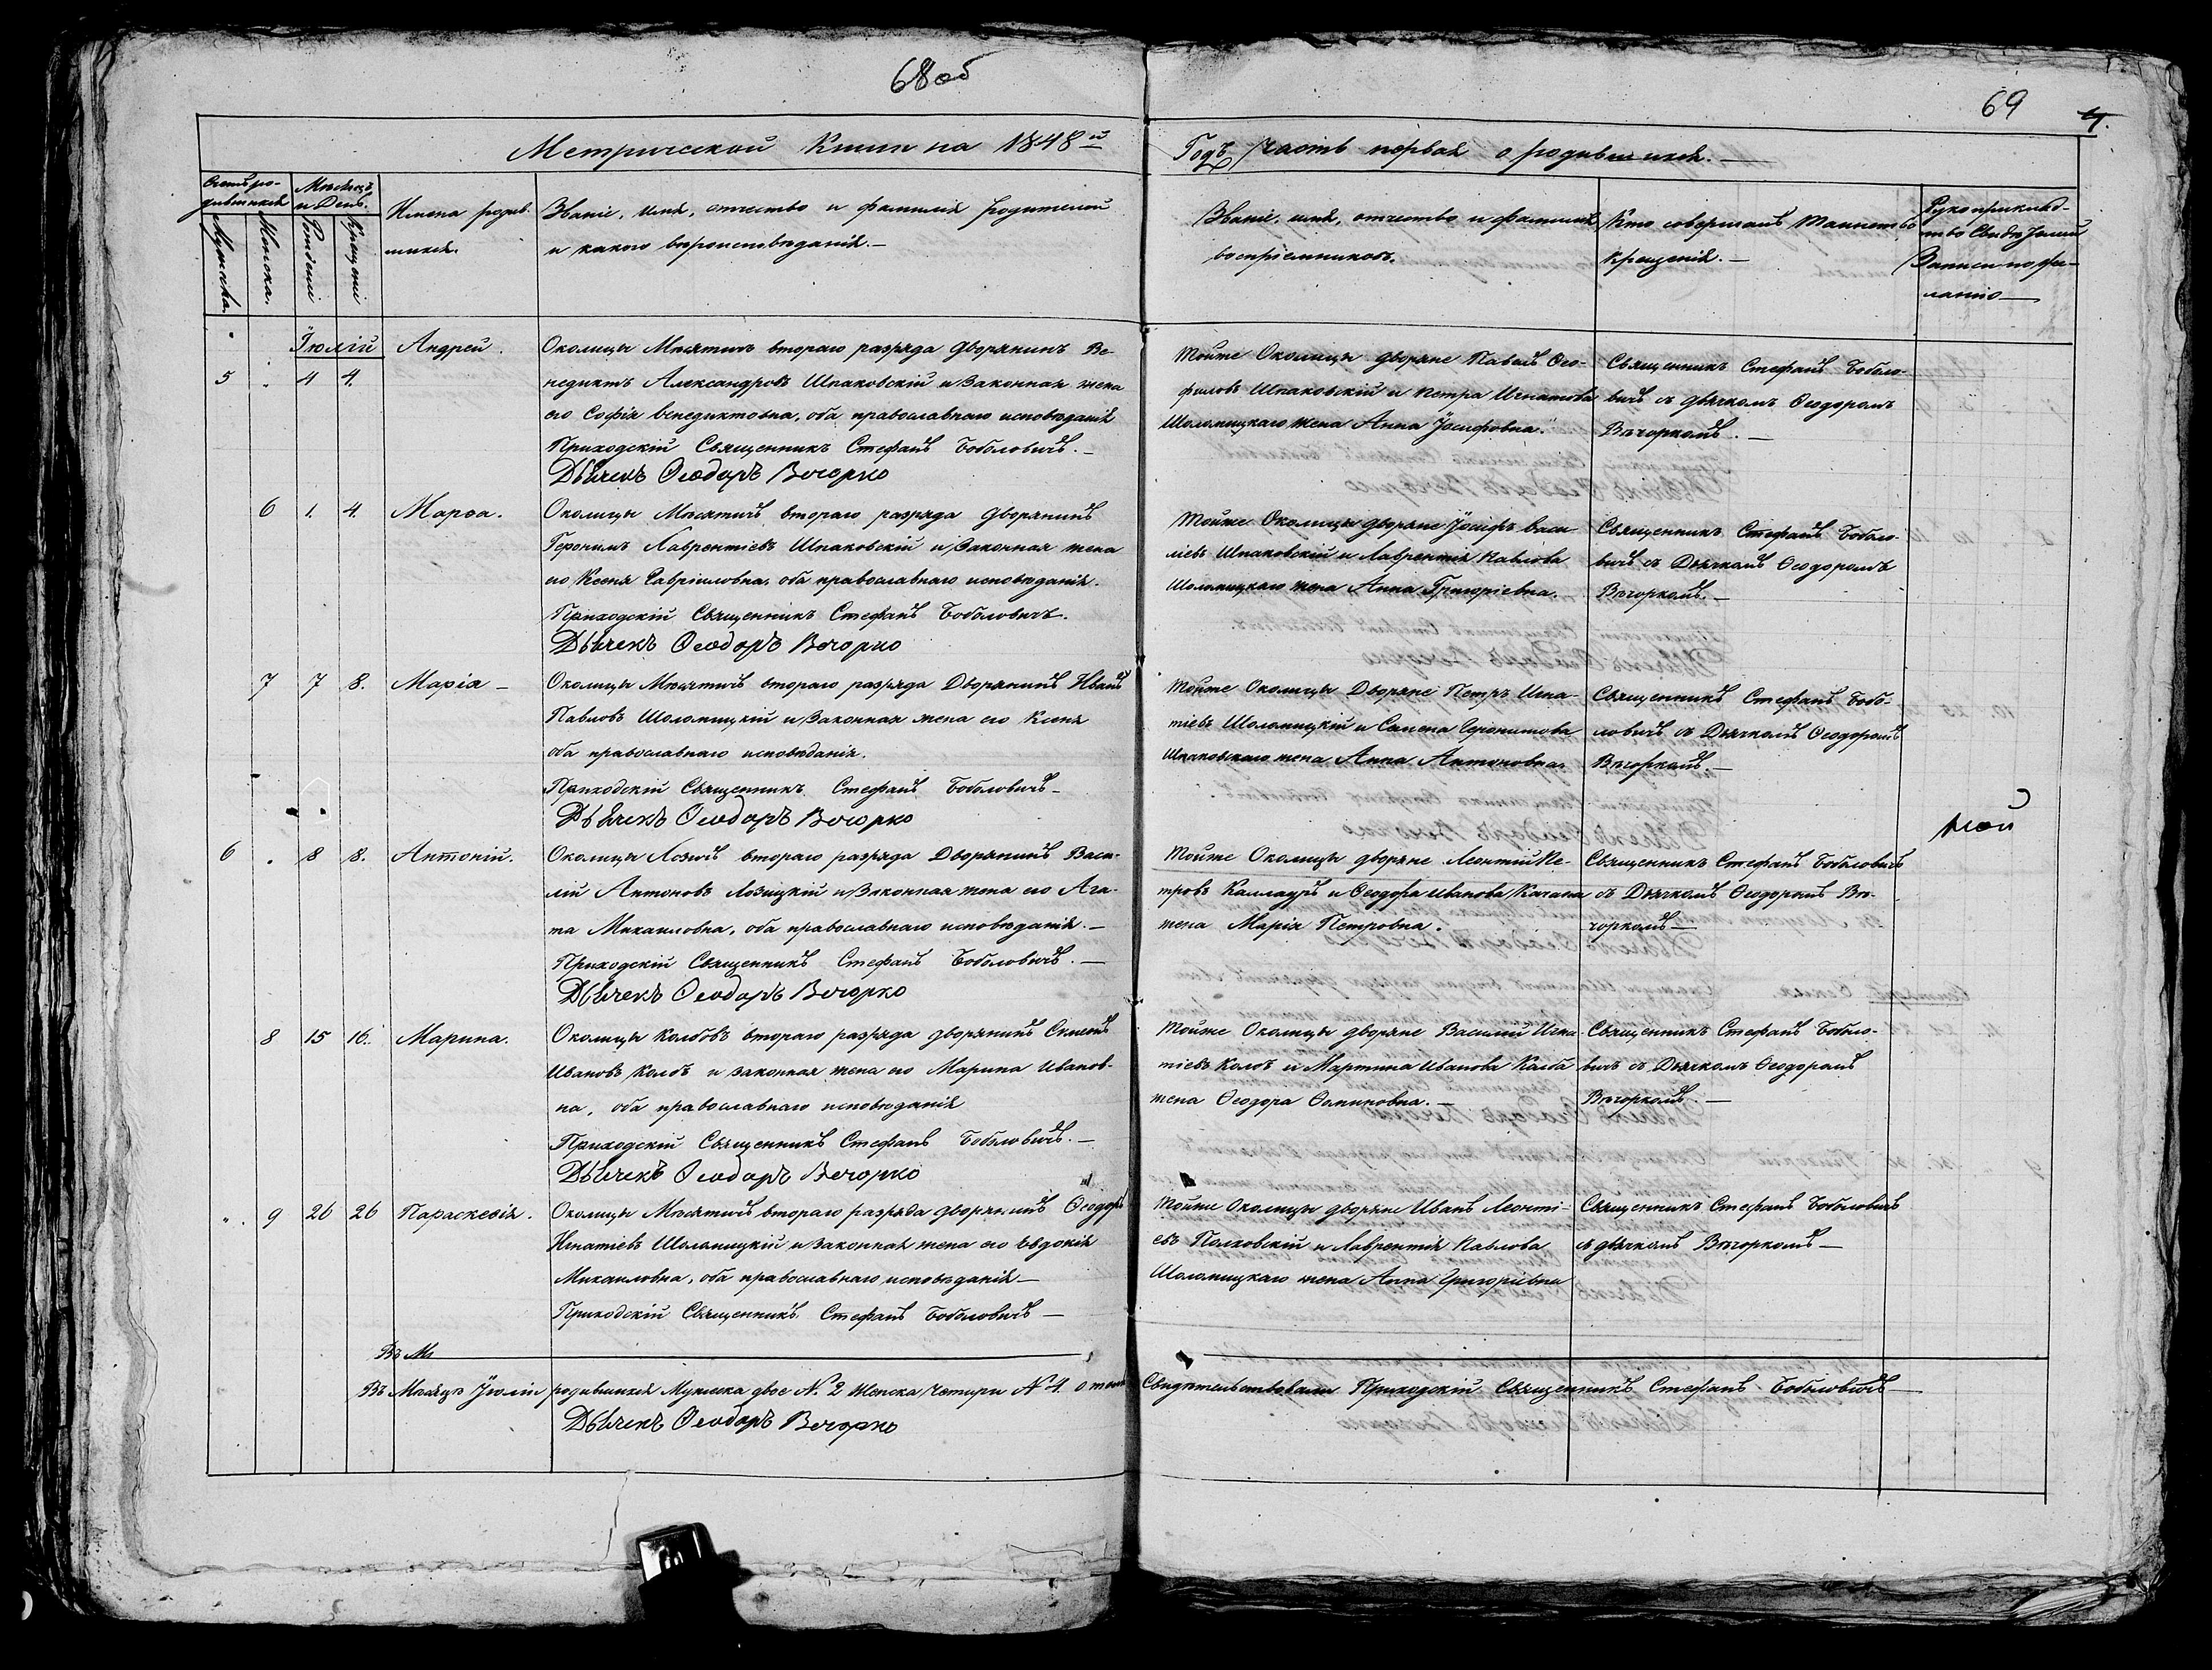 68 об
69
4.
Метрической Книги на 1848й
Годъ, часть первая о родившихся.
Счетъ ро-
дившихся
Мѣсяцъ
и День.
Мужеска.
Женска.
Рожденiя
Крещенiя
Имена родив-
шихся.
Званіе, имя, отчество и фамилія родителей
и какого вѣроисповѣданія.
Званіе, имя, отчество и фамилія
воспріемниковъ.
Кто совершалъ таинство
крещенія.
Рукоприкладство
Свидѣтелей
Записи по же-
ланію
Іюлій
5 4 4. Андрей.
Околицы Мнятичъ втораго разряда Дворянинъ Ве-
недиктъ Александровъ Шпаковскій и Законная жена
его Софія Венедиктовна, оба православнаго исповѣданія
Приходскій Священникъ Стефанъ Боболовичъ.
Дьячекъ Ѳеодоръ Вечорко
Тойже Околицы дворяне Павелъ Ѳео-
филовъ Шпаковскій и Петра Игнатова
Шоломицкаго жена Анна Іосифовна.
Священникъ Стефанъ Боболо-
вичъ съ дьячкомъ Ѳеодоромъ
Вѣчоркомъ.
6 1 4. Марѳа.
Околицы Мнятичъ втораго разряда Дворянинъ
Геронимъ Лаврентіевъ Шпаковскій и Законная жена
его Ксеня Гавріиловна, оба православнаго исповѣданія.
Приходскій Священникъ Стефанъ Боболовичъ.
Дьячекъ Ѳеодоръ Вечорко
Тойже Околицы дворяне Іосифъ Васи-
ліевъ Шпаковскій и Лаврентія Павлова
Шоломицкаго жена Анна Григоріевна.
Священникъ Стефанъ Боболо-
вичъ съ Дьячкомъ Ѳеодоромъ
Вѣчоркомъ.
7 7 8. Марія
Околицы Мнятичъ втораго разряда Дворянинъ Иванъ
Павловъ Шоломицкій и Законная жена его Ксеня
оба православнаго исповѣданія.
Приходскій Священникъ Стефанъ Боболовичъ
Дьячекъ Ѳеодоръ Вечорко
Тойже Околицы Дворяне Петръ Игна-
тіевъ Шоломицкій и Геронимова
Шпаковскаго жена Анна Антоновна
Священникъ Стефанъ Бобо-
ловичъ съ Дьячкомъ Ѳеодоромъ
Вѣчоркомъ.
6 8 8. Антоній.
Околицы Лозичъ втораго разряда Дворянинъ Васи-
лій Антоновъ Лозицкій и Законная жена его Ага-
та Михаиловна, оба православнаго исповѣданія.
Приходскій Священникъ Стефанъ Боболовичъ.
Дьячекъ Ѳеодоръ Вечорко
Тойже Околицы дворяне Леонтій Пе-
тровъ Калладуръ и Ѳеодора Иванова Качана
жена Марія Петровна.
Священникъ Стефанъ Боболовичъ
съ Дьячкомъ Ѳеодоромъ Вѣ-
чоркомъ
8 15 16. Марина.
Околицы Колбовъ втораго разряда дворянинъ
Ивановъ Колбъ и законная жена его Марина Иванов-
на, оба православнаго исповѣданія
Приходскій Священникъ Стефанъ Боболовичъ.
Дьячекъ Ѳеодоръ Вечорко
Тойже Околицы дворяне Василій Игна-
тіевъ Колбъ и Мартина Иванова Колба
жена Ѳеодора Ѳоминовна.
Священникъ Стефанъ Боболо-
вичъ съ Дьячкомъ Ѳеодоромъ
Вѣчоркомъ.
9 26 26 Параскевія.
Околицы Мнятичъ втораго разряда дворянинъ Ѳеодоръ
Игнатіевъ Шоломицкій и Законная жена его Евдокія
Михаиловна, оба православнаго исповѣданія
Приходскій Священникъ Стефанъ Боболовичъ
Тойже Околицы дворяне Иванъ Леонті-
евъ Полховскій и Лаврентія Павлова
Шоломицкаго жена Анна Григоріевна
Священникъ Стефанъ Боболовичъ
съ дьячкомъ Вѣчоркомъ
Въ Мѣ
Въ Мѣсяцѣ Іюліи родившихся Мужеска двое N. 2 Женска Четыри N 4. о томъ Свидѣтельствовали Приходскій Священникъ Стефанъ Боболовичъ
Дьячекъ Ѳеодоръ Вечорко